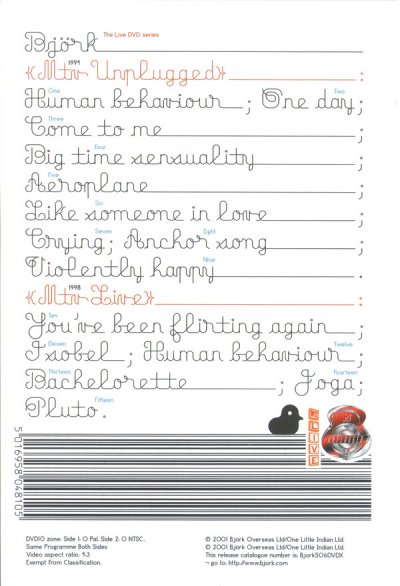 Björk The Live DVD series
1994
«Mtv Unplugged» :
One Two
Human behaviour ; One day ;
Three
Come to me ;
Four
Big time sensuality ;
Five
Aeroplane ;
Six
Like someone in love ;
Seven Eight
Crying ; Anchor song ;
Nine
Violently happy .
1998
«Mtv Live» :
Ten
You've been flirting again ;
Eleven Twelve
Isobel ; Human behaviour ;
Thirteen Fourteen
Bachelorette ; Joga ;
Fifteen
Pluto .
LIVE
5 016958 048105
DVD10 zone: Side 1: 0 Pal. Side 2: 0 NTSC.
Same Programme Both Sides
Video aspect ratio: 4:3
Exempt from Classification.
℗ 2001 Bjork Overseas Ltd/One Little Indian Ltd.
© 2001 Bjork Overseas Ltd/One Little Indian Ltd.
This release catalogue number is: Bjork506DVDX
¬ go to: http://www.bjork.com